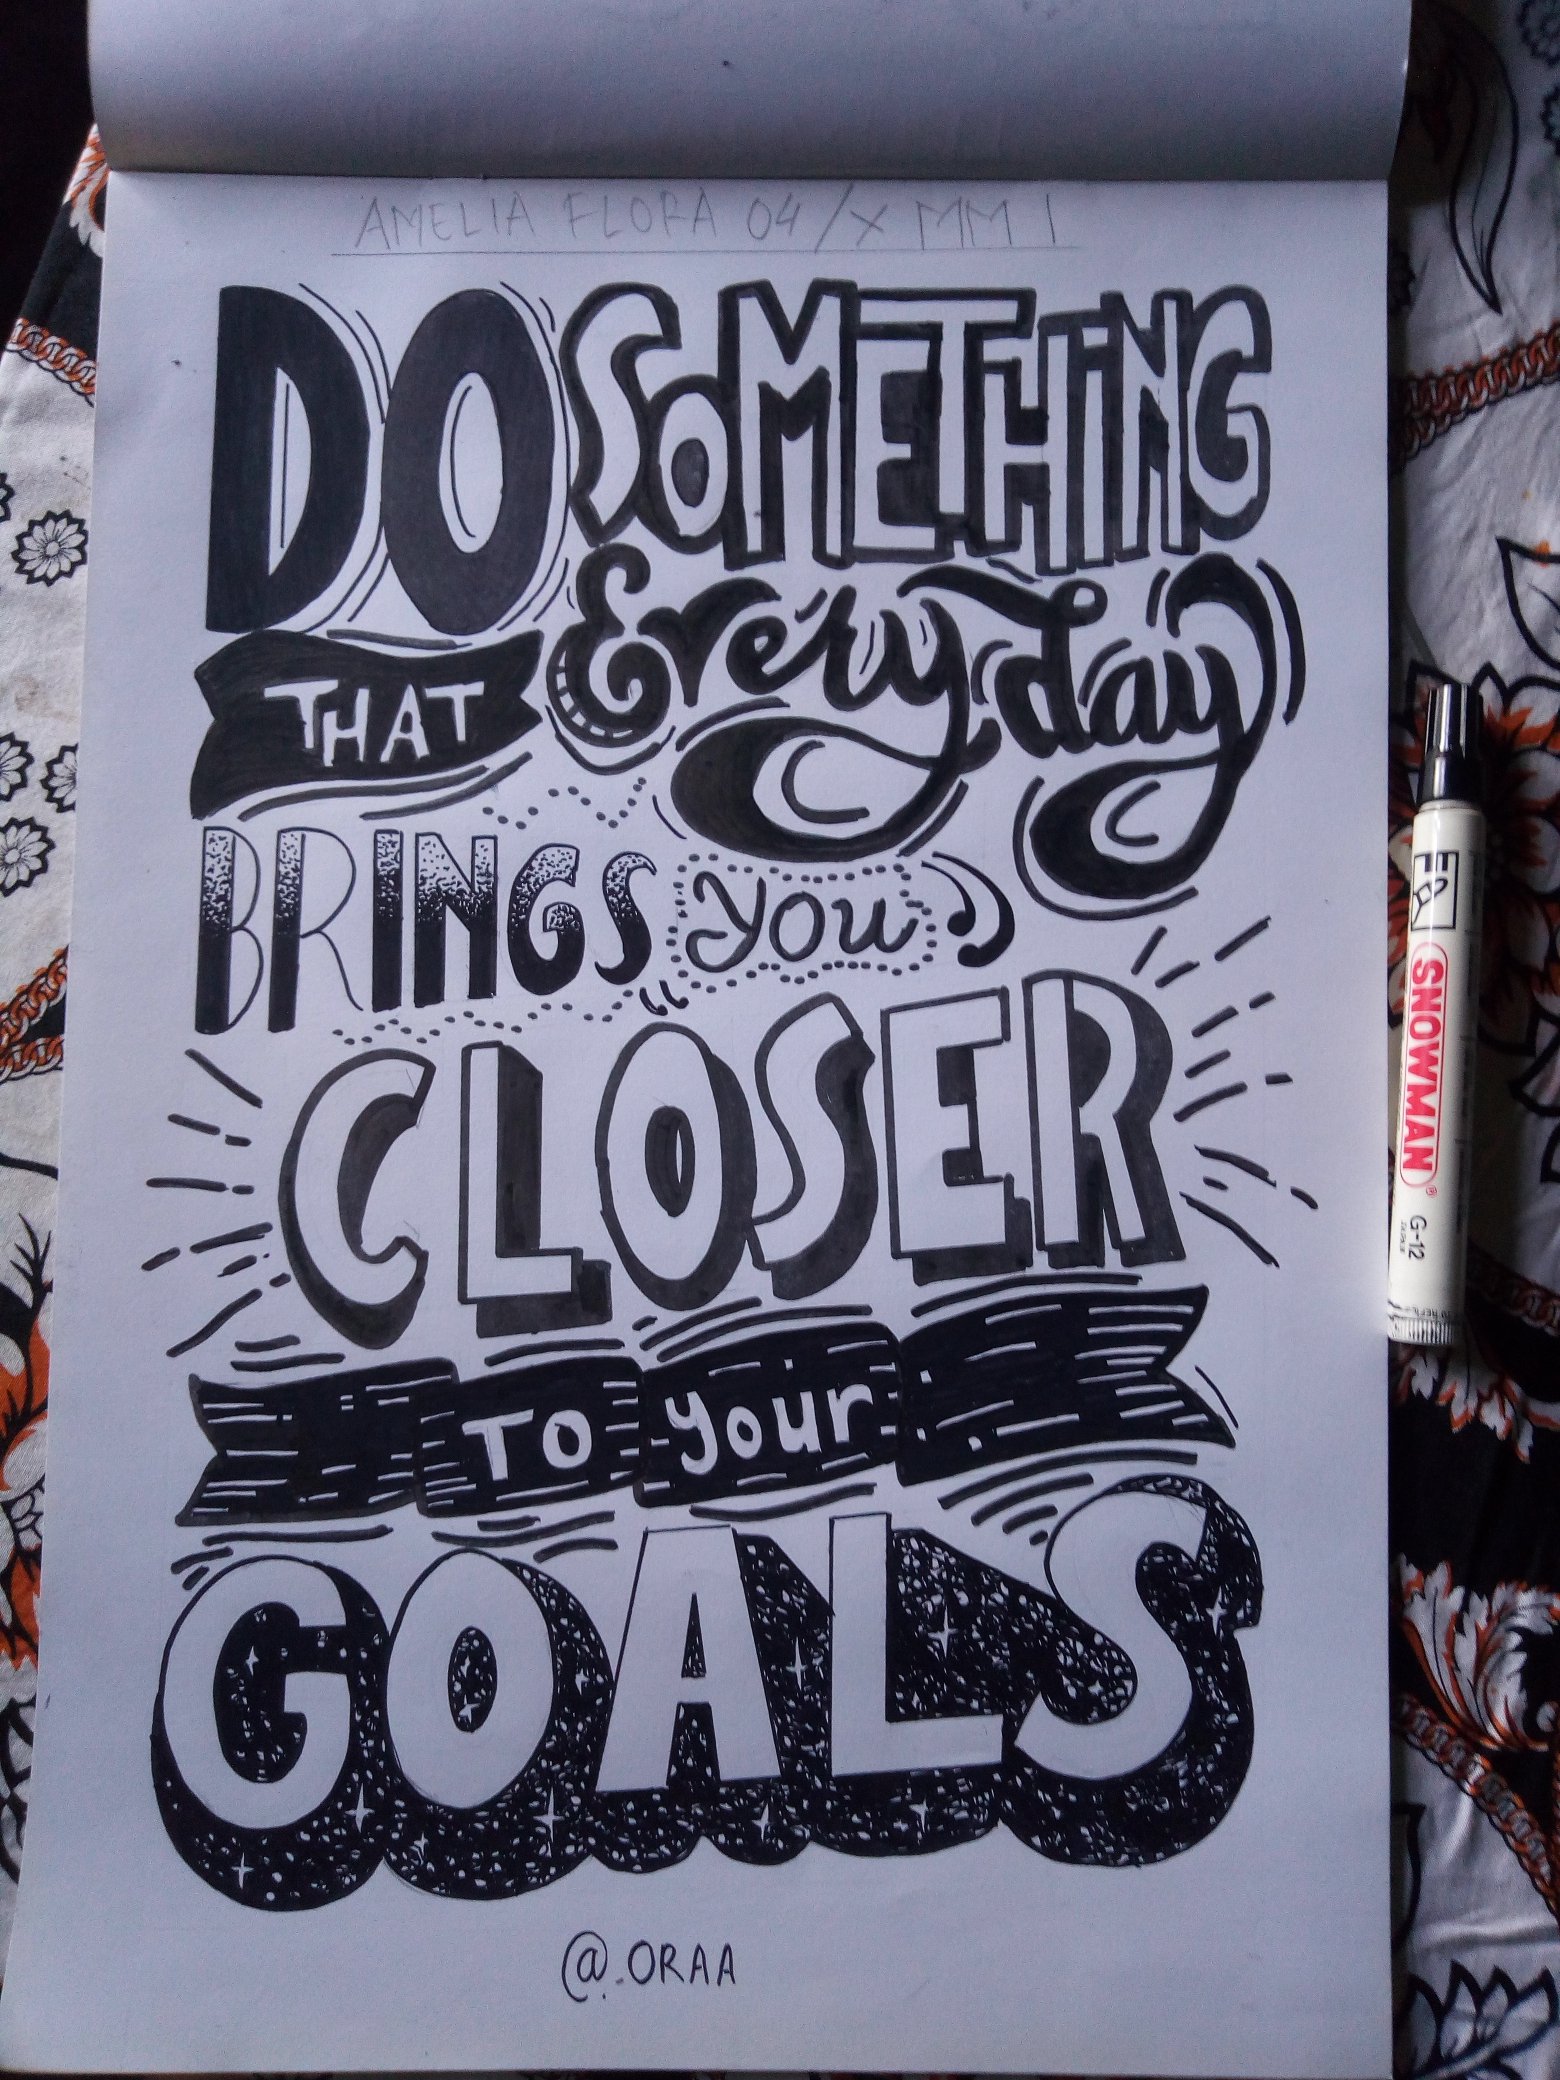 AMELIA FLORA 04/X MM 1
DO SOMETHING
Everyday
THAT
BRINGS you
CLOSER
TO your
GOALS
@.ORAA
SNOWMAN®
G-12